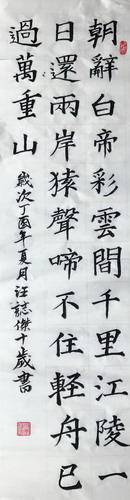 朝辭白帝彩雲間千里江陵一
日還兩岸猿聲啼不住輕舟已
過萬重山
歲次丁酉年夏月汪誌傑十歲書